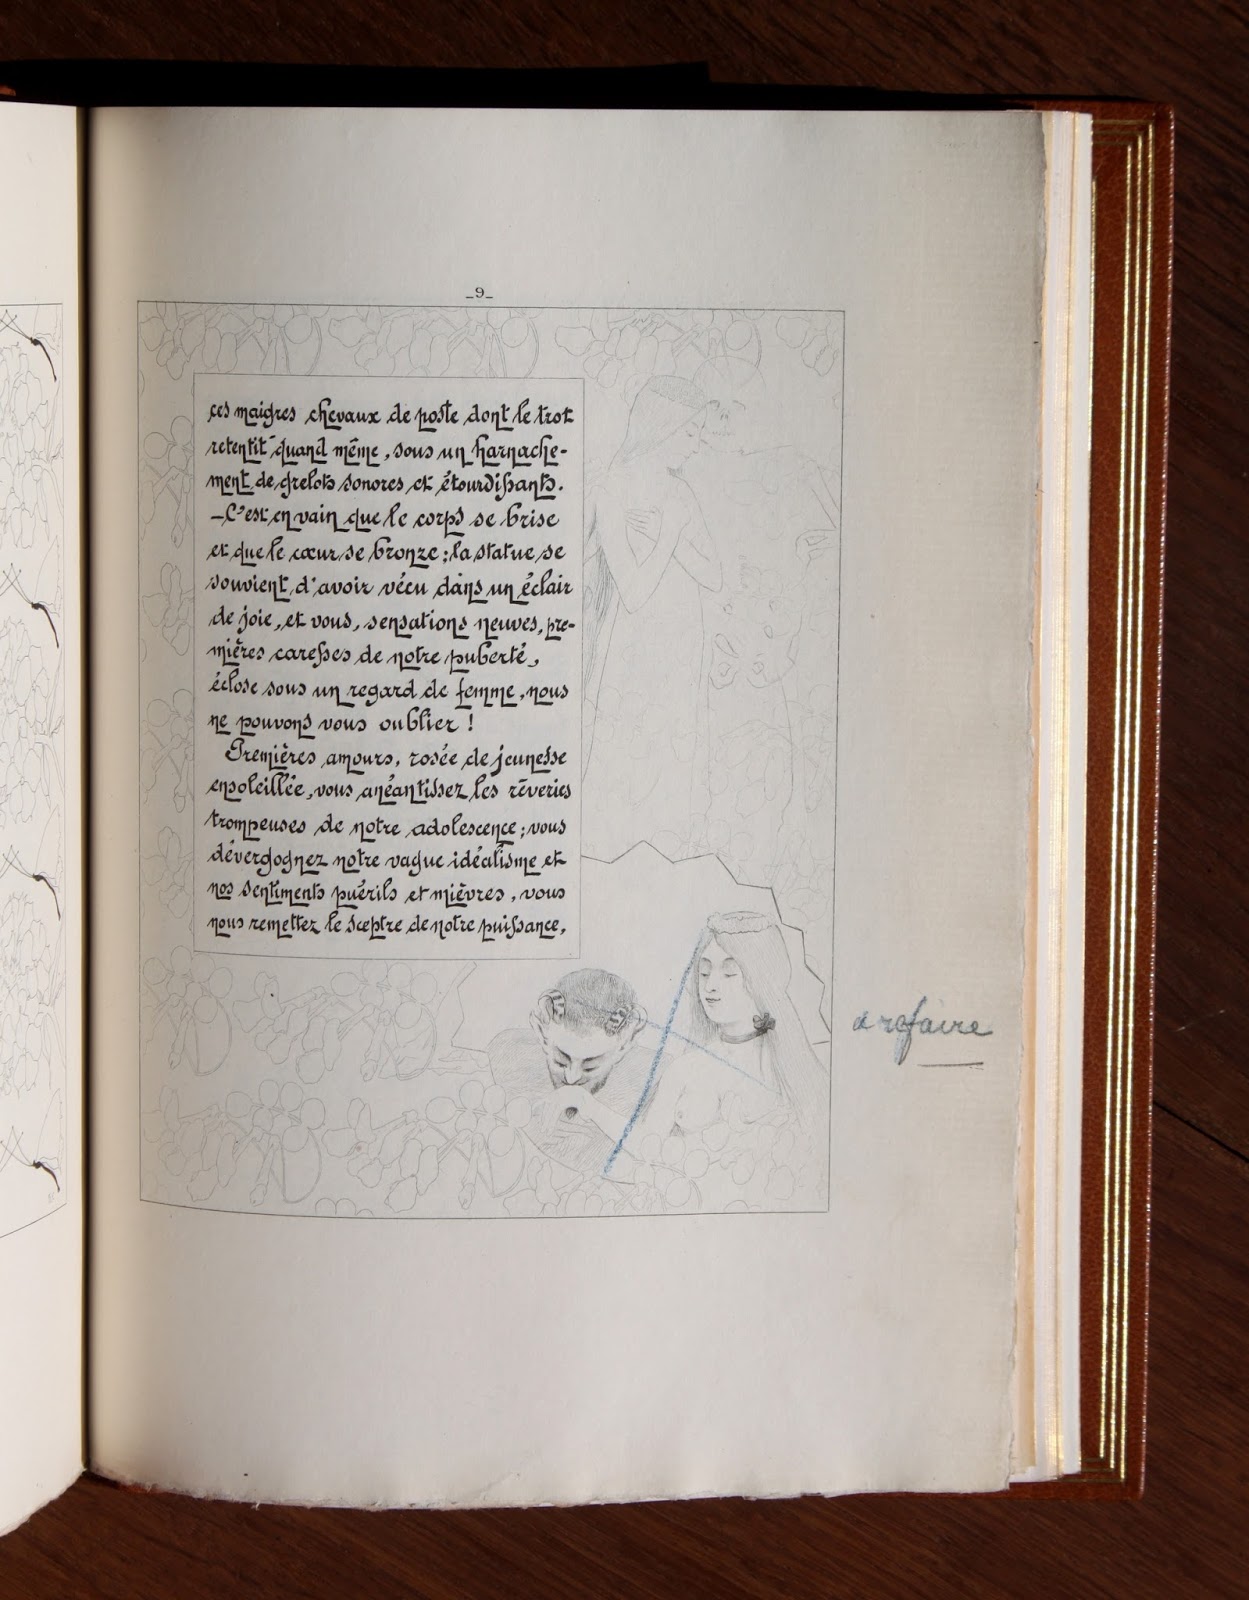 _9_
ces maigres chevaux de poste dont le trot
retentit quand même, sous un harnache-
ment de grelots sonores et étourdissants.
—C'est en vain que le corps se brise
et que le cœur se bronze; la statue se
souvient d'avoir vécu dans un éclair
de joie, et vous, sensations neuves, pre-
mières caresses de notre puberté,
éclose sous un regard de femme, nous
ne pouvons vous oublier!
Premières amours, rosée de jeunesse
ensoleillée, vous anéantissez les rêveries
trompeuses de notre adolescence; vous
dévergognez notre vague idéalisme et
nos sentiments puérils et mièvres, vous
nous remettez le sceptre de notre puissance,
a refaire